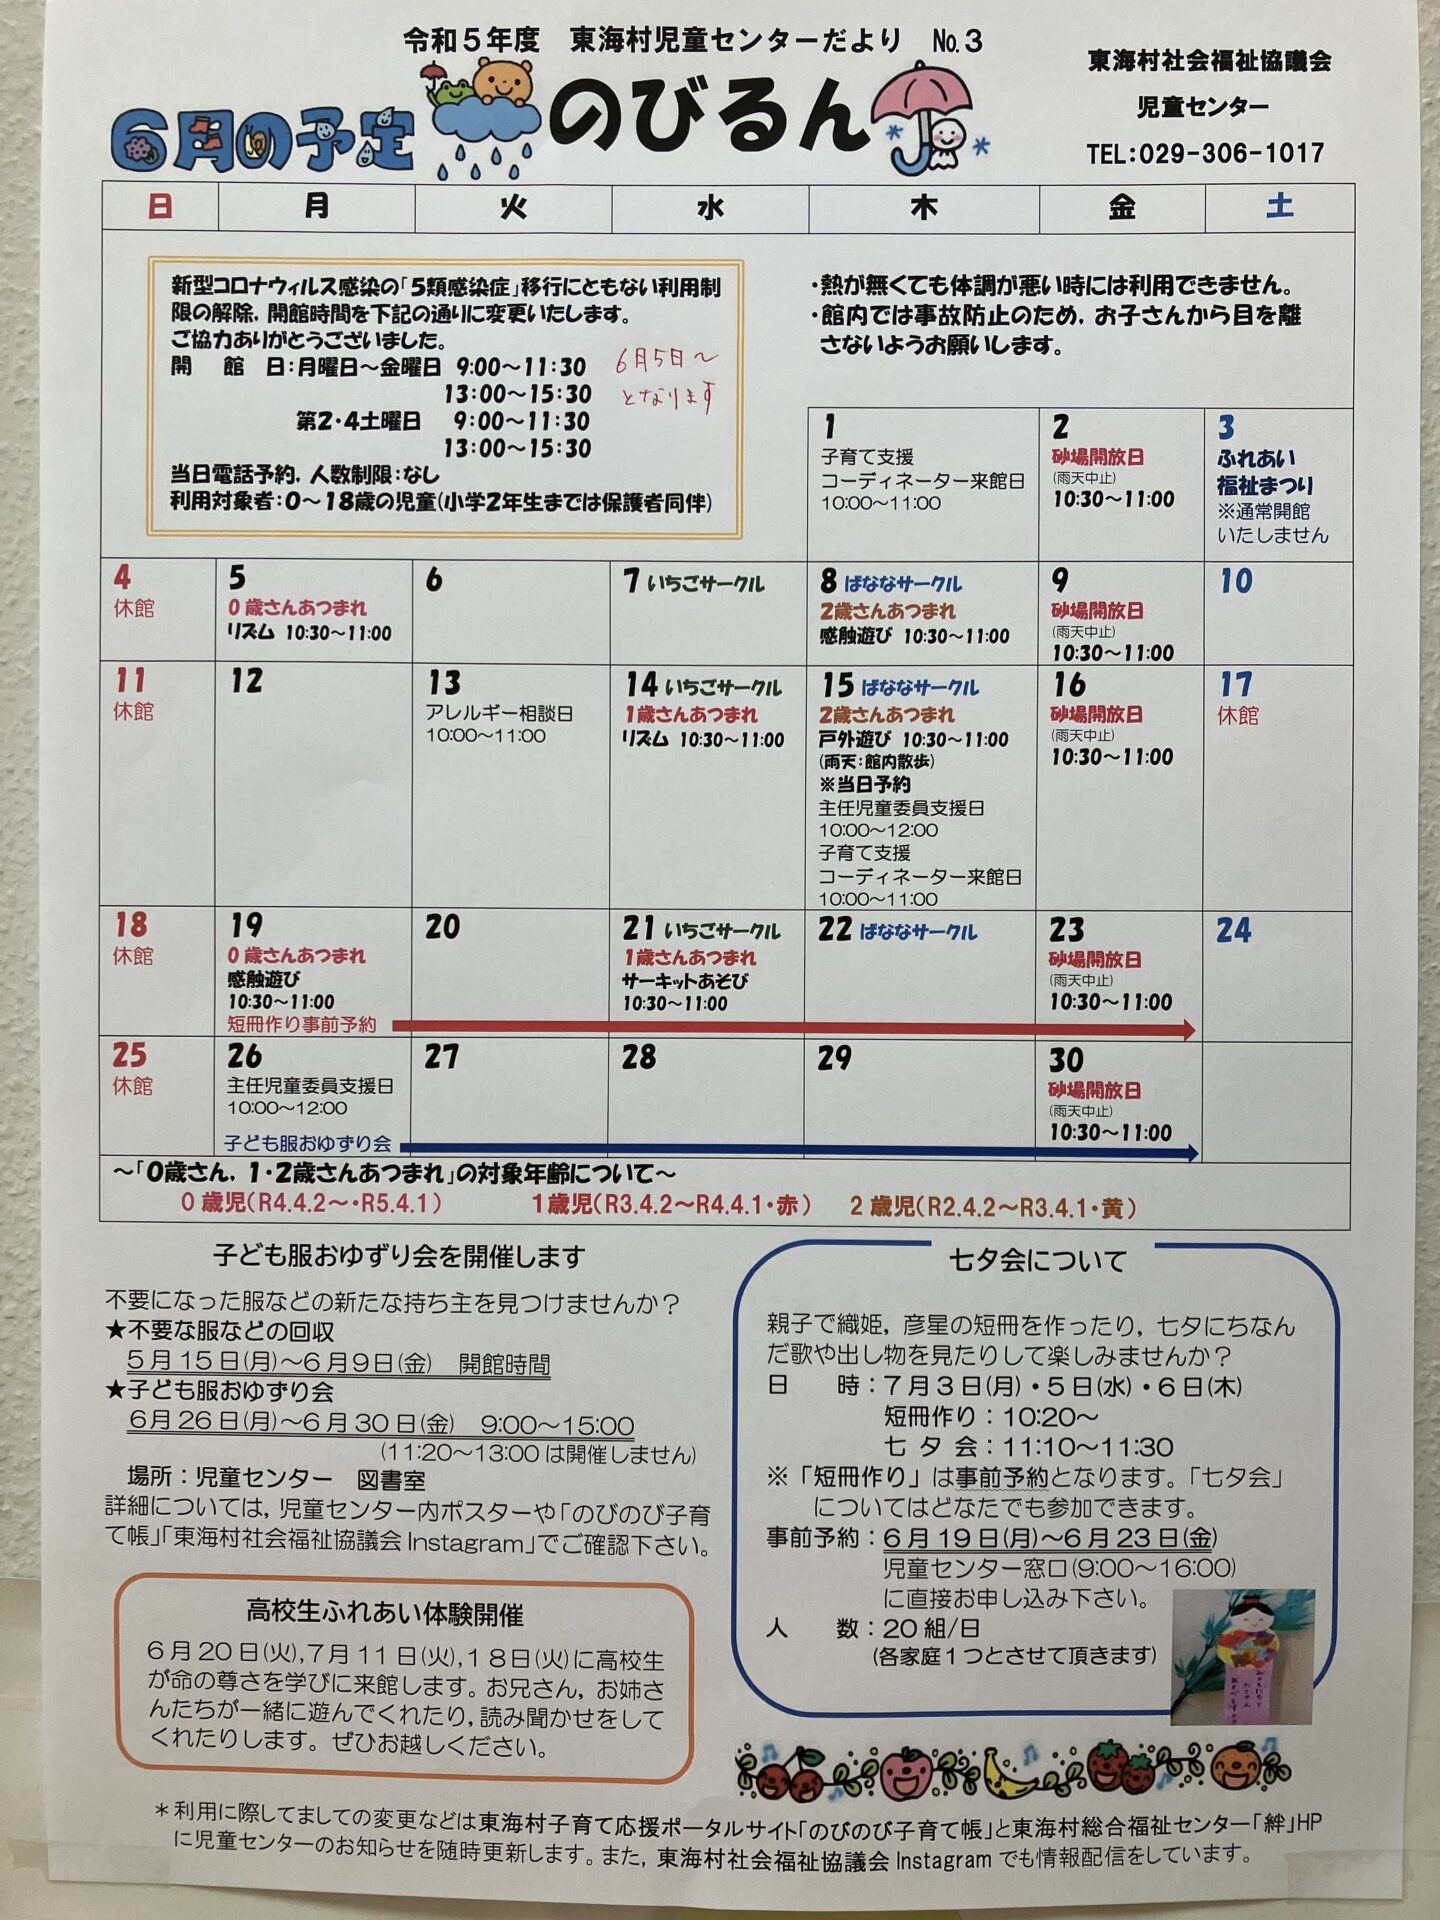 令和５年度　東海村児童センターだより　№３
6月の予定
のびるん
東海村社会福祉協議会
児童センター
TEL：029-306-1017
日 月 火 水 木 金 土
新型コロナウィルス感染の「５類感染症」移行にともない利用制
限の解除，開館時間を下記の通りに変更いたします。
ご協力ありがとうございました。
開　館　日：月曜日～金曜日　9：00～11：30
13：00～15：30
第２・４土曜日　9：00～11：30
13：00～15：30
当日電話予約，人数制限：なし
利用対象者：０～１８歳の児童（小学２年生までは保護者同伴）
6月5日～
となります
・熱が無くても体調が悪い時には利用できません。
・館内では事故防止のため，お子さんから目を離
さないようお願いします。
1
子育て支援
コーディネーター来館日
10:00～11:00
2
砂場開放日
(雨天中止)
10:30～11:00
3
ふれあい
福祉まつり
※通常開館
いたしません
4
休館
5
０歳さんあつまれ
リズム 10:30～11:00
6
7 いちごサークル
8 ばななサークル
2歳さんあつまれ
感触遊び 10:30～11:00
9
砂場開放日
(雨天中止)
10:30～11:00
10
11
休館
12
13
アレルギー相談日
10:00～11:00
14 いちごサークル
1歳さんあつまれ
リズム 10:30～11:00
15 ばななサークル
2歳さんあつまれ
戸外遊び 10:30～11:00
(雨天：館内散歩)
※当日予約
主任児童委員支援日
10:00～12:00
子育て支援
コーディネーター来館日
10:00～11:00
16
砂場開放日
(雨天中止)
10:30～11:00
17
休館
18
休館
19
０歳さんあつまれ
感触遊び
10:30～11:00
短冊作り事前予約
20
21 いちごサークル
1歳さんあつまれ
サーキットあそび
10:30～11:00
22 ばななサークル
23
砂場開放日
(雨天中止)
10:30～11:00
24
25
休館
26
主任児童委員支援日
10:00～12:00
子ども服おゆずり会
27
28
29
30
砂場開放日
(雨天中止)
10:30～11:00
～「０歳さん，１・２歳さんあつまれ」の対象年齢について～
０歳児（R4.4.2～・R5.4.1） 1歳児（R3.4.2～R4.4.1・赤） 2歳児（R2.4.2～R3.4.1・黄）
子ども服おゆずり会を開催します
不要になった服などの新たな持ち主を見つけませんか？
★不要な服などの回収
５月１５日(月)～６月９日(金)　開館時間
★子ども服おゆずり会
６月２６日(月)～６月３０日(金)　9:00～15:00
(11:20～13:00は開催しません)
場所：児童センター　図書室
詳細については，児童センター内ポスターや「のびのび子育
て帳」「東海村社会福祉協議会Instagram」でご確認下さい。
高校生ふれあい体験開催
６月２０日(火)，７月１１日(火)，１８日(火)に高校生
が命の尊さを学びに来館します。お兄さん，お姉さ
んたちが一緒に遊んでくれたり，読み聞かせをして
くれたりします。ぜひお越しください。
七夕会について
親子で織姫，彦星の短冊を作ったり，七夕にちなん
だ歌や出し物を見たりして楽しみませんか？
日　　時：７月３日(月)・５日(水)・６日(木)
短冊作り：10:20～
七 夕 会：11:10～11:30
※「短冊作り」は事前予約となります。「七夕会」
についてはどなたでも参加できます。
事前予約：６月１９日(月)～６月２３日(金)
児童センター窓口(9:00～16:00)
に直接お申し込み下さい。
人　　数：20組/日
(各家庭１つとさせて頂きます)
＊利用に際してましての変更などは東海村子育て応援ポータルサイト「のびのび子育て帳」と東海村総合福祉センター「絆」HP
に児童センターのお知らせを随時更新します。また，東海村社会福祉協議会Instagramでも情報配信をしています。